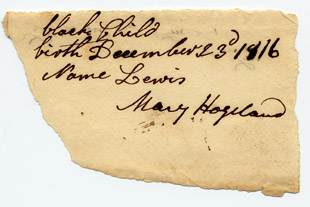 black Child
birth December 23d 1816
Name Lewis
Mary Hogeland